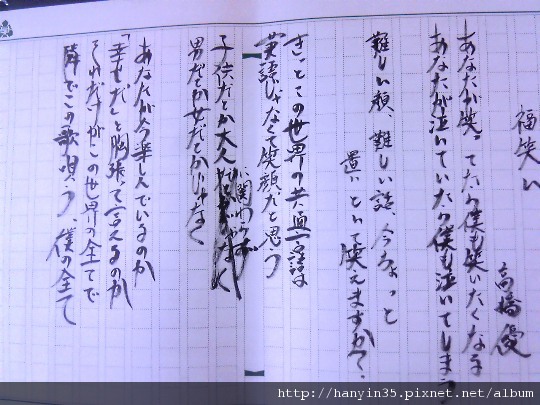 福笑い
高橋優
あなたが笑ってたら僕も笑いたくなる
あなたが泣いていたら僕も泣いてしまう
難しい顔、難しい話、今ちょっと
置いといて笑えますか？
きっとこの世界の共通言語は
英語じゃなくて笑顔だと思う
子供だとか大人に関わらず
男だとか女だとかじゃなく
あなたが今楽しんでいるのか
「幸せだ」と胸張って言えるのか
それだけがこの世界の全てで
隣でこの歌唄う、僕の全て
http://hanyin35.pixnet.net/album